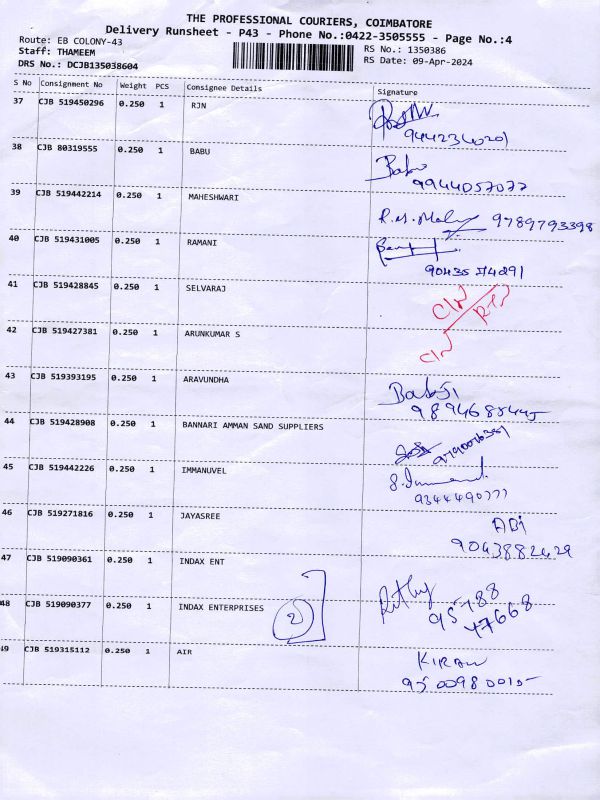 THE PROFESSIONAL COURIERS, COIMBATORE
Delivery Runsheet - P43 - Phone No.:0422-3505555 - Page No.:4
Route: EB COLONY-43
RS No.: 1350386
Staff: THAMEEM
RS Date: 09-Apr-2024
DRS No.: DCJB135038604
S No Consignment No Weight PCS Consignee Details Signature
37 CJB 519450296 0.250 1 RJN
94422340201
38 CJB 80319555 0.250 1 BABU Babu
9944057077
39 CJB 519442214 0.250 1 MAHESHWARI 9789793398
40 CJB 519431005 0.250 1 RAMANI
41 CJB 519428845 0.250 1 SELVARAJ
42 CJB 519427381 0.250 1 ARUNKUMAR S
43 CJB 519393195 0.250 1 ARAVUNDHA
44 CJB 519428908 0.250 1 BANNARI AMMAN SAND SUPPLIERS
45 CJB 519442226 0.250 1 IMMANUVEL
9344490777
46 CJB 519271816 0.250 1 JAYASREE ABi
9043882429
47 CJB 519090361 0.250 1 INDAX ENT
48 CJB 519090377 0.250 1 INDAX ENTERPRISES 2
95788
47668
49 CJB 519315112 0.250 1 AIR KIRAN
9500980015